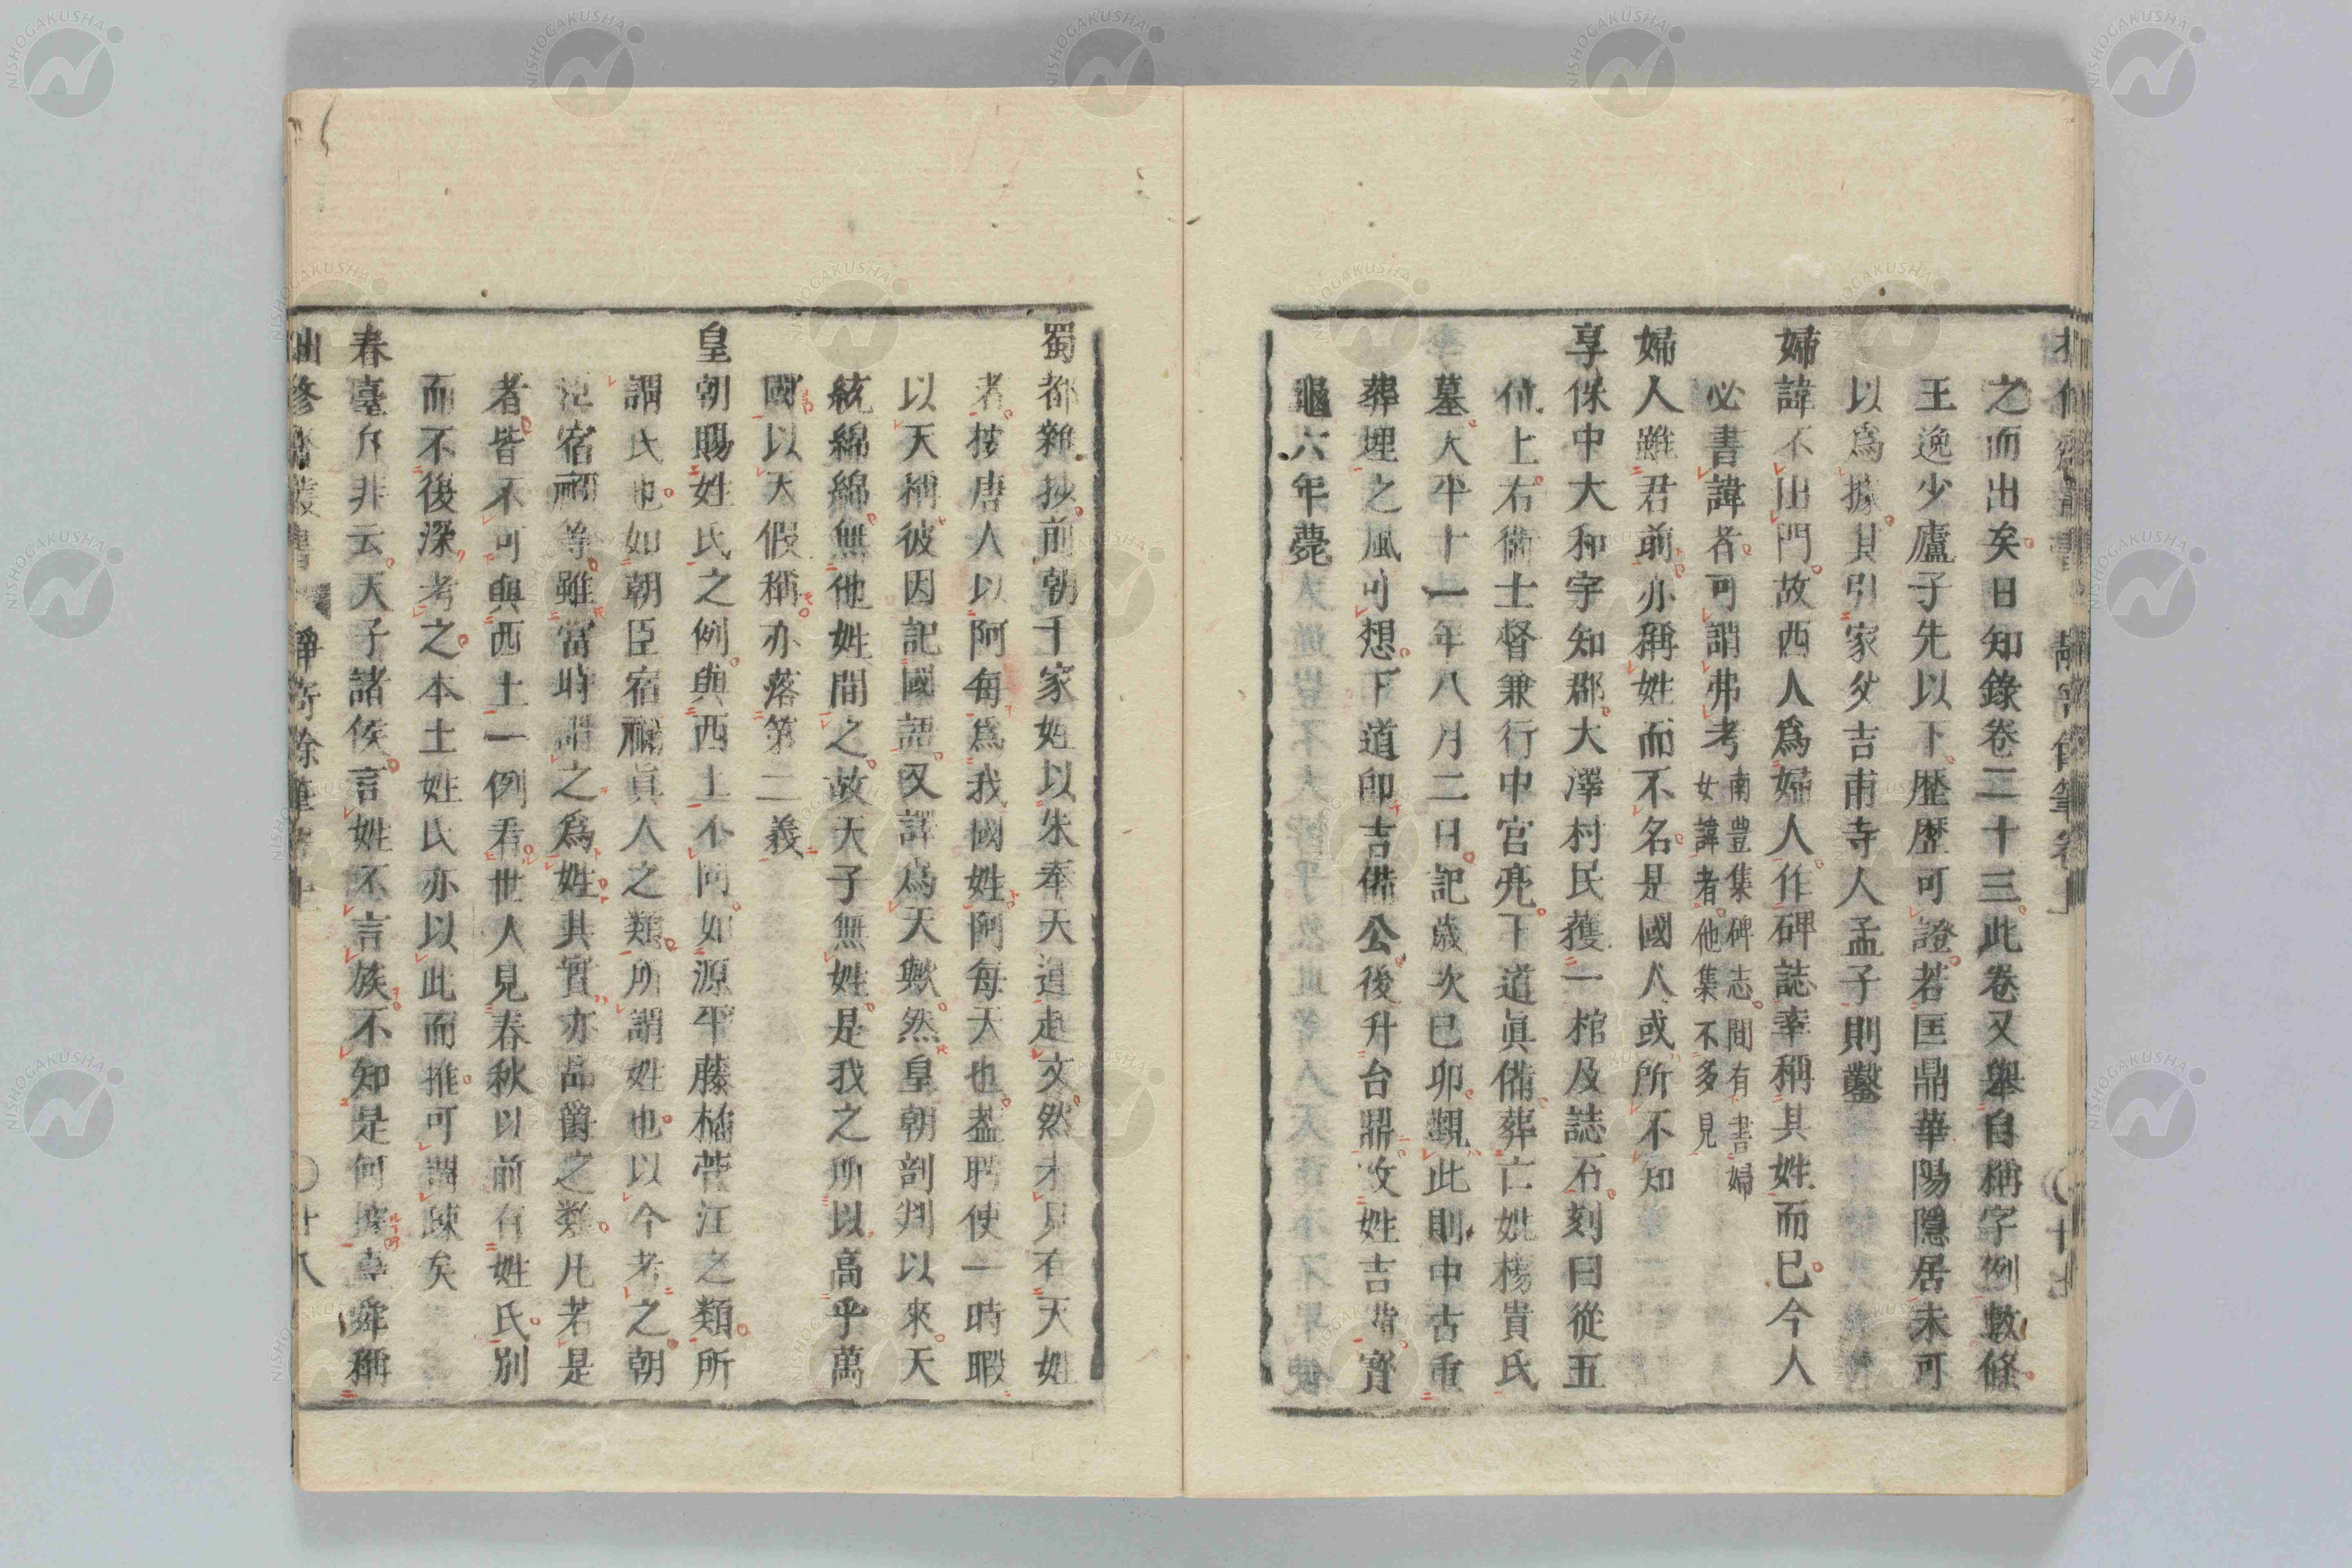 之而出矣日知錄卷二十三此卷又舉自稱字例數條
王逸少廬子先以下歷歷可證若匡鼎華陽隱居未可
以爲據其引家父吉甫寺人孟子則鑿
婦諱不出門故西人爲婦人作碑誌率稱其姓而已今人
必書諱者可謂弗考
南豊集碑志間有書婦
女諱者他集不多見
婦人雖君前亦稱姓而不名是國人或所不知
享保中大和宇知郡大澤村民獲一棺及誌石刻曰從五
位上右衞士督兼行中宮亮下道眞備葬亡妣楊貴氏
墓天平十一年八月二日記歲次已卯觀此則中古重
葬埋之風可想下道卽吉備公後升台鼎改姓吉備寶
龜六年薨
蜀都雜抄前朝千家姓以朱奉天運起文然未見有天姓
者按唐人以阿每爲我國姓阿每天也盖聘使一時暇
以天稱彼因記國語又譯爲天歟然皇朝剖判以來天
統綿綿無他姓間之故天子無姓是我之所以高乎萬
國以天假稱亦落第二義
皇朝賜姓氏之例與西土不同如源平藤橘菅江之類所
謂氏也如朝臣宿禰眞人之類所謂姓也以今考之朝
臣宿禰等雖當時謂之爲姓其實亦品爵之類凡若是
者皆不可與西土一例看世人見春秋以前有姓氏別
而不後深考之本土姓氏亦以此而推可謂踈矣
春臺斥非云天子諸侯言姓不言族不知是何據舜稱